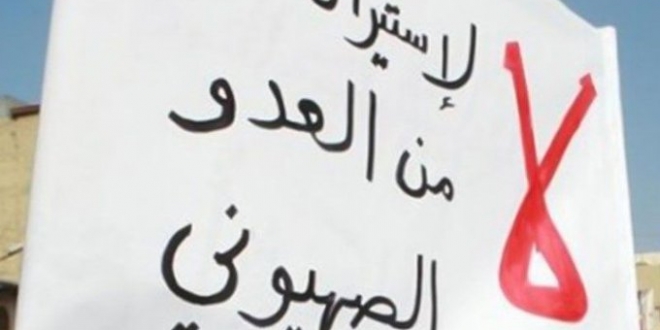 لا
لإستيراد
من العدو
الصهيوني